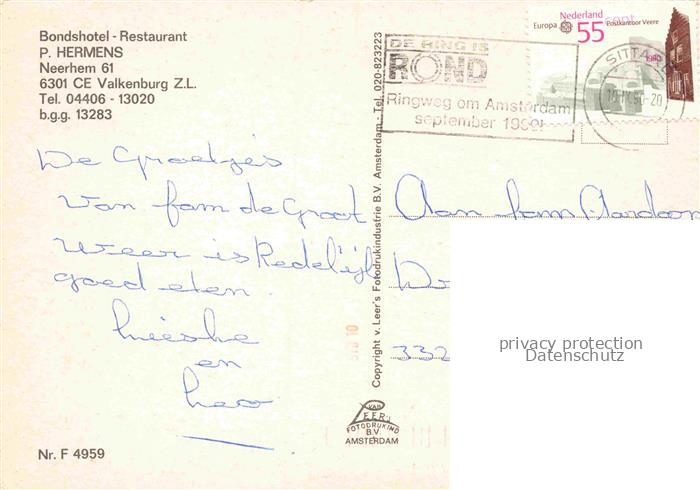 Bondshotel - Restaurant
P. HERMENS
Neerhem 61
6301 CE Valkenburg Z.L.
Tel. 04406 - 13020
b.g.g. 13283
De Groetjes
van fam de Groot
weer is Redelijk
goed eten.
Lieske
en
Leo
Nr. F 4959
Copyright v. Leer's Fotodrukindustrie B.V. Amsterdam - Tel. 020-823223
VAN
LEER'S
FOTODRUKIND
B.V.
AMSTERDAM
DE RING IS
ROND
Ringweg om Amsterdam
september 1990!
Nederland
Europa
55 cent
Postkantoor Veere
SITTA
Aan fam
332
privacy protection
Datenschutz